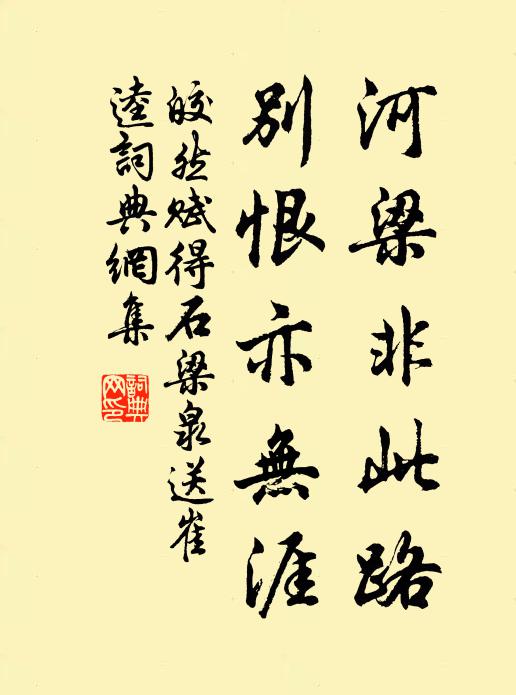 河梁非此路
別恨亦無涯
皎然賦得石梁泉送崔
逵詞典網集
詞典網印